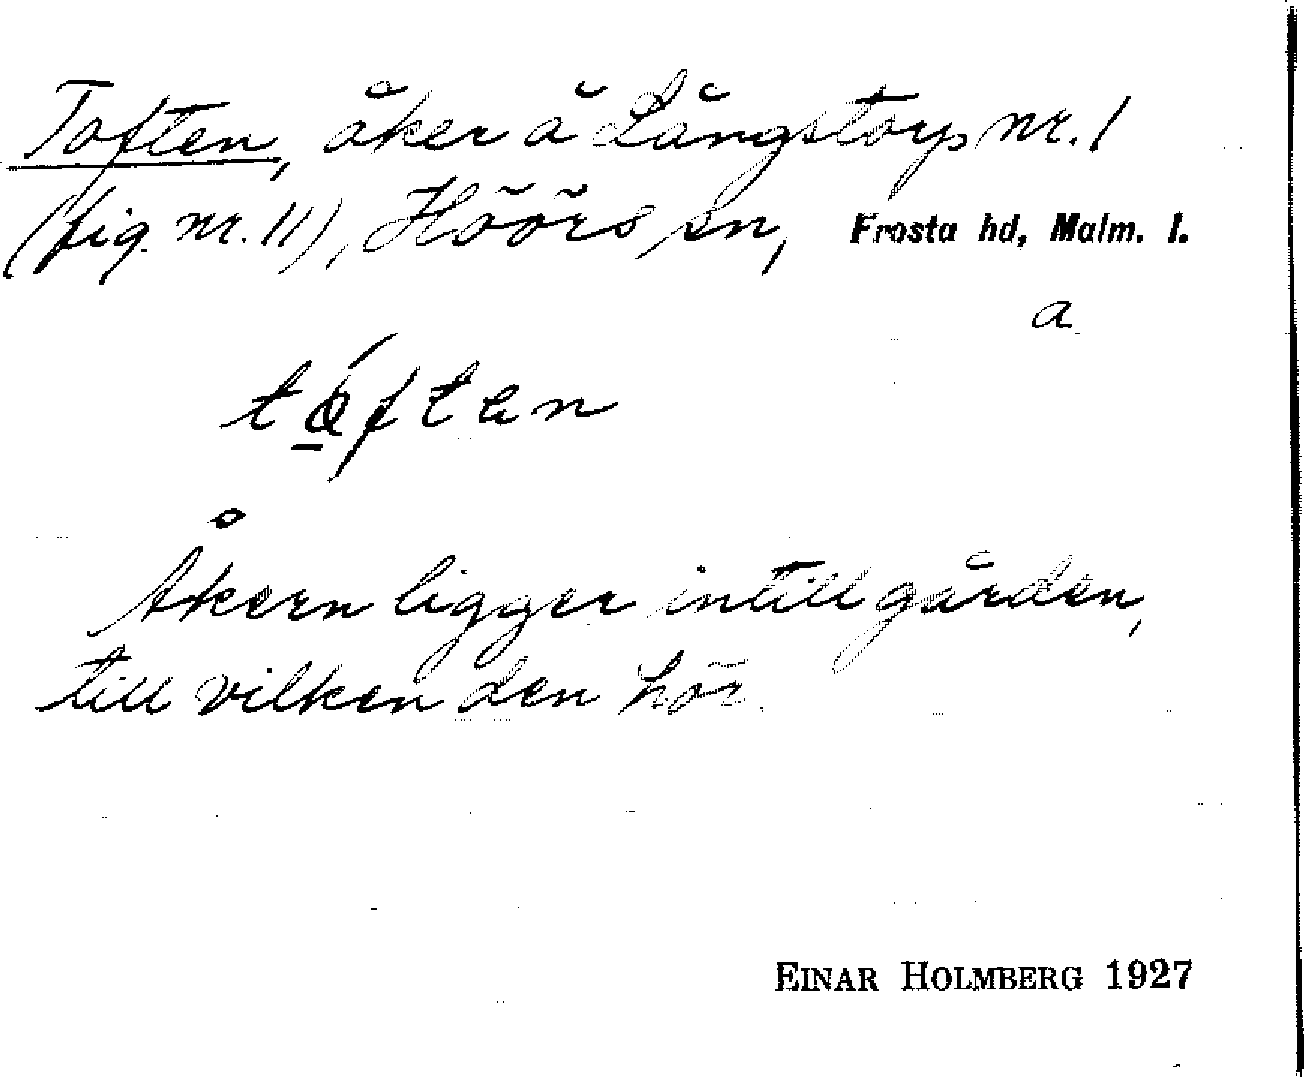 Toften, åker å Långstorp nr. 1
(fig. nr. 11), Höörs sn, Frosta hd, Malm. l.
a
Åkern ligger intill gården,
till vilken den hör.
EINAR HOLMBERG 1927